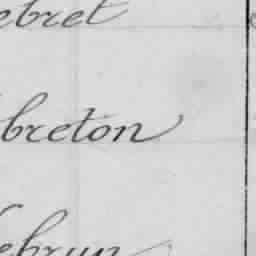 ebret
breton
ebrun